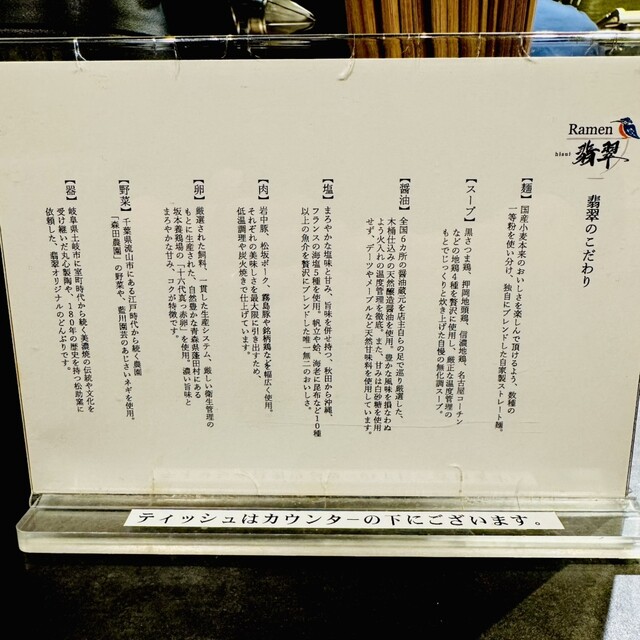 Ramen
hisui
翡翠
翡翠のこだわり
【麺】国産小麦本来のおいしさを楽しんで頂けるよう、数種の
一等粉を使い分け、独自にブレンドした自家製ストレート麺。
【スープ】黒さつま鶏、押岡地頭鶏、信濃地鶏、名古屋コーチン
などの地鶏4種を贅沢に使用し、厳正な温度管理の
もとでじっくりと炊き上げた自慢の無化調スープ。
【醤油】全国6カ所の醤油蔵元を店主自らの足で巡り厳選した、
木桶仕込みの天然醸造醤油を使用。豊かな風味を損なわぬ
よう火入れの温度管理を徹底。また、甘みは白砂糖を使用
せず、デーツやメープルなど天然甘味料を使用しています。
【塩】まろやかな塩味と甘み、旨味を併せ持つ、秋田から沖縄、
フランスの海塩5種を使用。帆立や蛤、海老に昆布など10種
以上の魚介を贅沢にブレンドした唯一無二のおいしさ。
【肉】岩中豚、松坂ポーク、霧島豚や銘柄鶏などを幅広く使用。
それぞれの美味しさを最大限に引き出すため、
低温調理や炭火焼きで仕上げています。
【卵】厳選された飼料、一貫した生産システム、厳しい衛生管理の
もとに生産された、自然豊かな青森県蓬田村にある
坂本養鶏場の「十六代真っ赤卵」を使用。濃い旨味と
まろやかな甘み、コクが特徴です。
【野菜】千葉県流山市にある江戸時代から続く農園
「森田農園」の野菜や、藍川園芸のあじさいネギを使用。
【器】岐阜県土岐市に室町時代から続く美濃焼の伝統や文化を
受け継いだ丸心製陶や、180年の歴史を持つ松助窯に
依頼した、翡翠オリジナルのどんぶりです。
ティッシュはカウンターの下にございます。